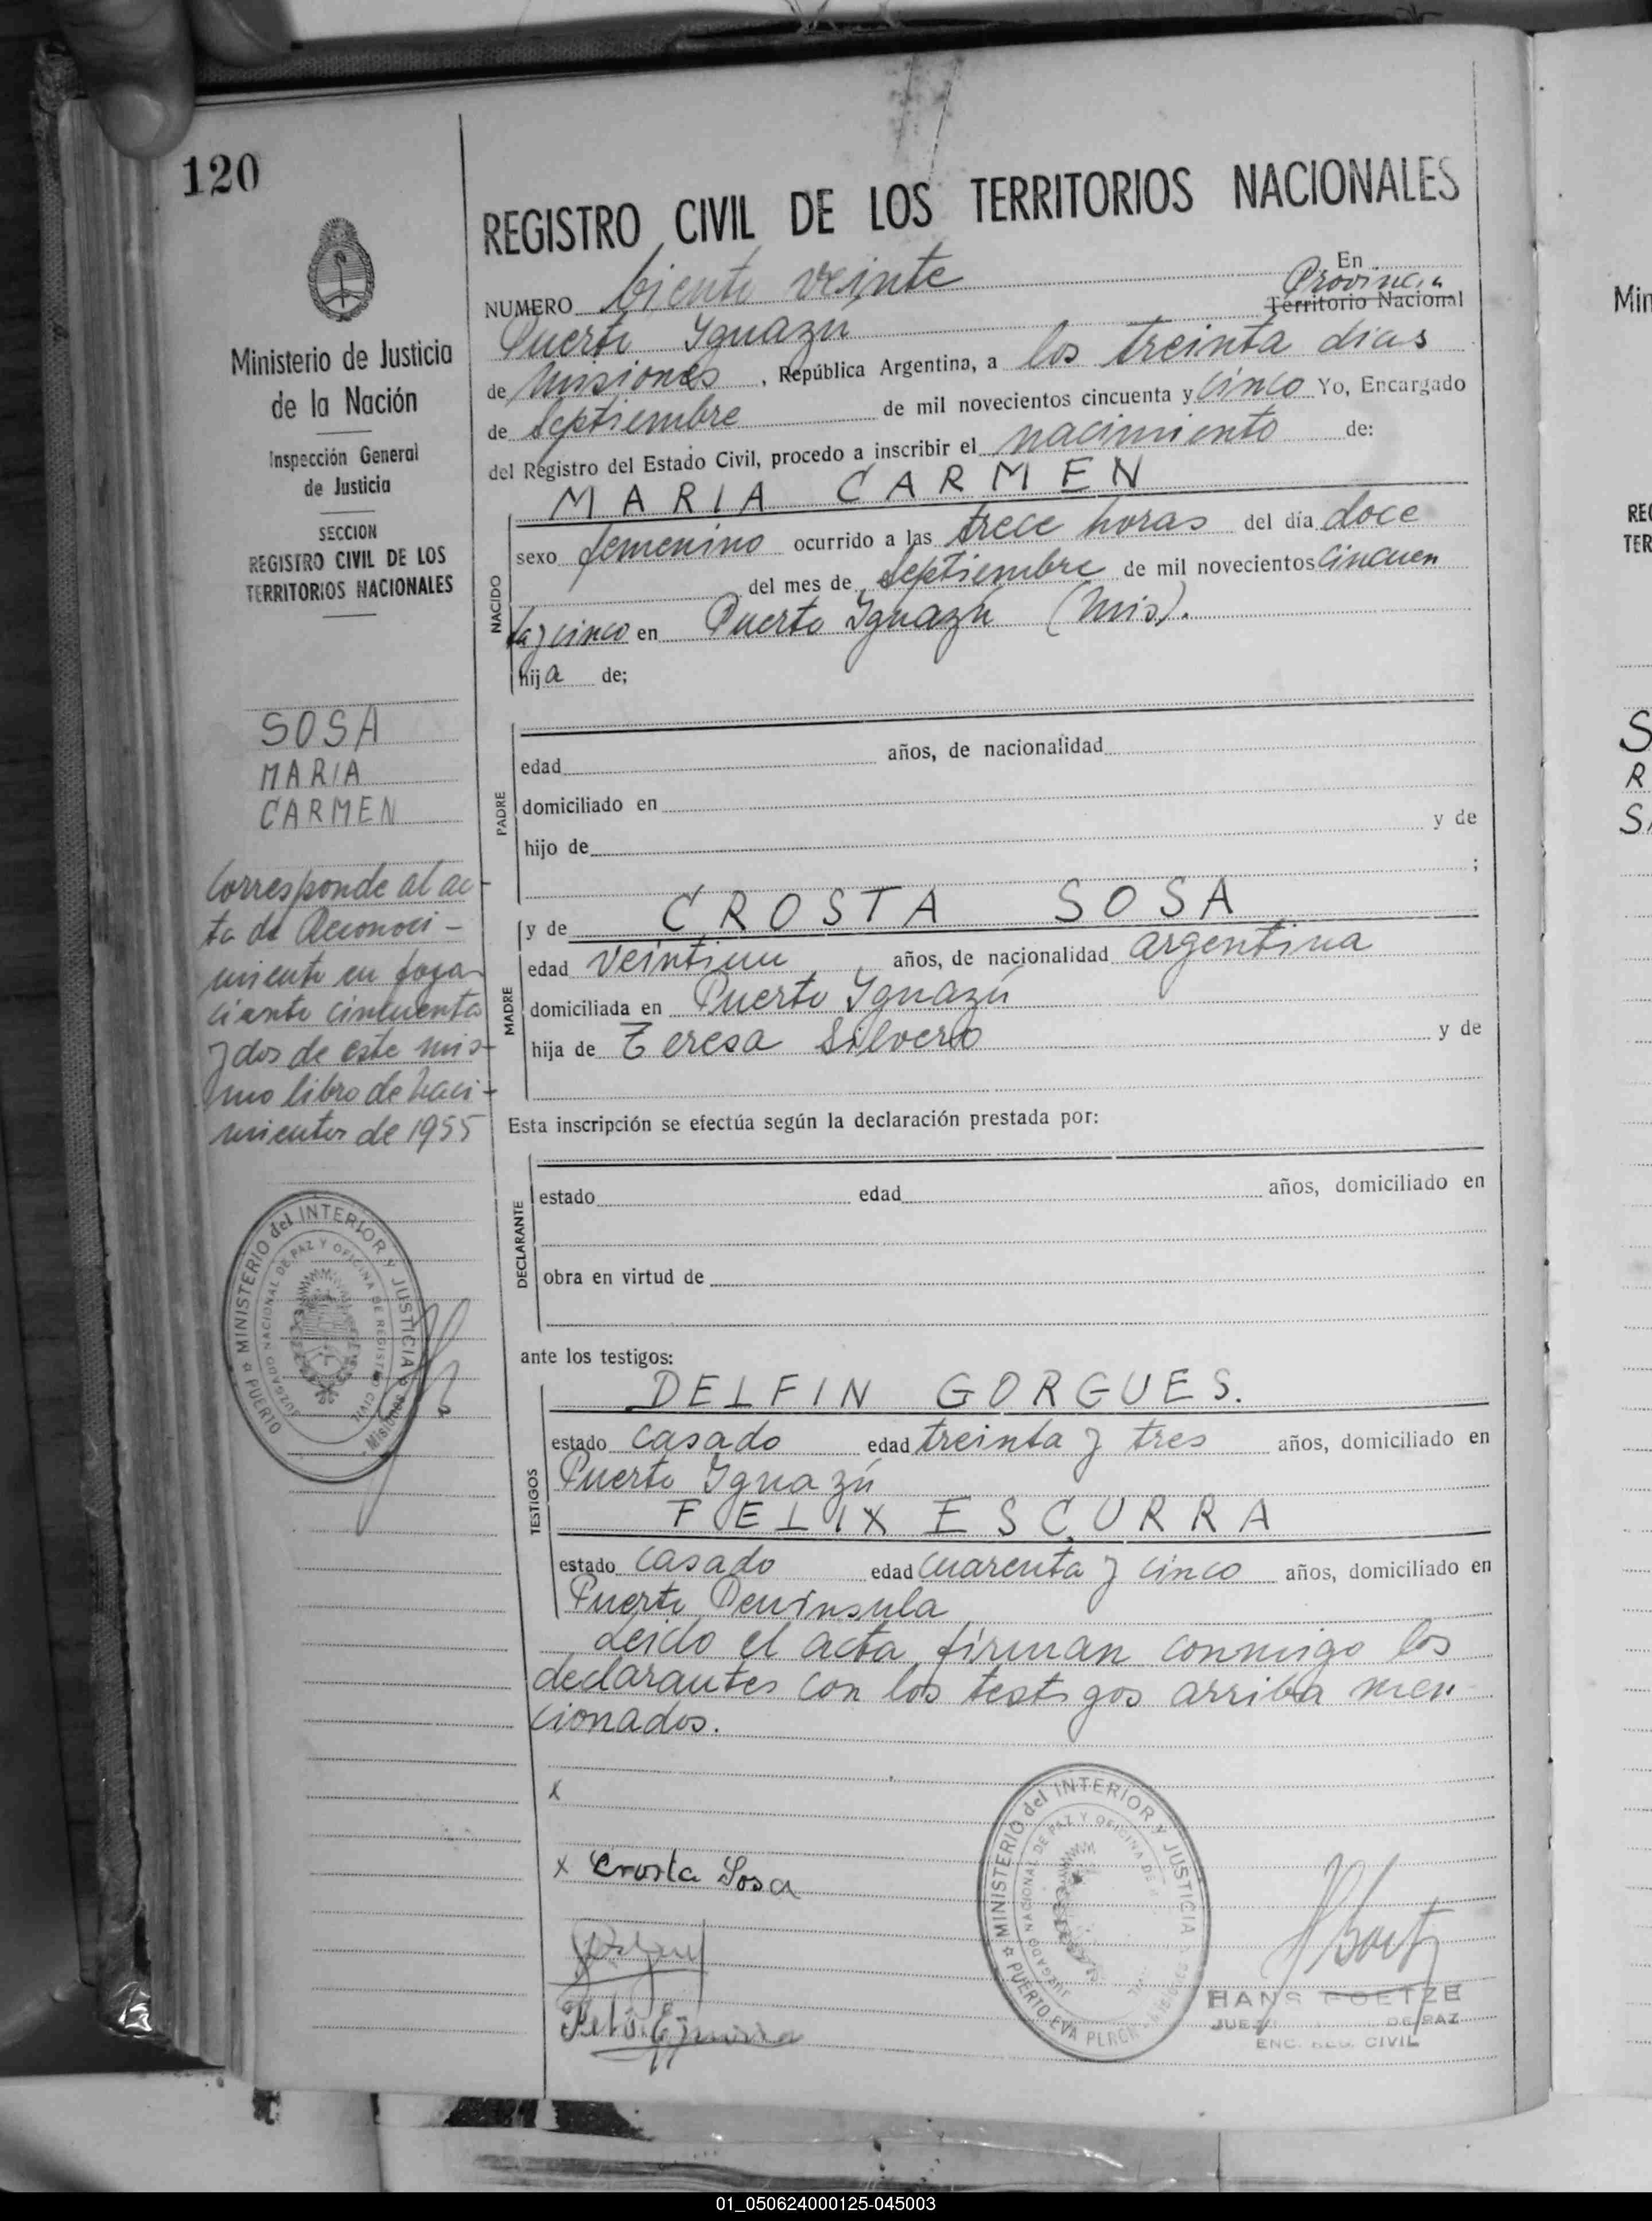 120
Ministerio de Justicia
de la Nación
Inspección General
de Justicia
SECCION
REGISTRO CIVIL DE LOS
TERRITORIOS NACIONALES
SOSA
MARIA
CARMEN
Corresponde al ac-
ta de Reconoci-
miento en foja
ciento cincuenta
y dos de este mis-
mo libro de Naci-
mientos de 1955
MINISTERIO del INTERIOR y JUSTICIA
JUZGADO NACIONAL DE PAZ Y OFICINA DE REGISTRO CIVIL
PUERTO
Misiones
REGISTRO CIVIL DE LOS TERRITORIOS NACIONALES
NUMERO Ciento veinte En
Provincia
Puerto Iguazú Territorio Nacional
de Misiones, República Argentina, a los treinta dias
de Septiembre de mil novecientos cincuenta y cinco Yo, Encargado
del Registro del Estado Civil, procedo a inscribir el nacimiento de:
MARIA CARMEN
NACIDO
sexo femenino ocurrido a las trece horas del día doce
del mes de Septiembre de mil novecientos cincuen
ta y cinco en Puerto Iguazú (Mis).
hija de;
PADRE
edad años, de nacionalidad
domiciliado en
hijo de y de
;
MADRE
y de CROSTA SOSA
edad veintiun años, de nacionalidad argentina
domiciliada en Puerto Iguazú
hija de Teresa Silvero y de
Esta inscripción se efectúa según la declaración prestada por:
DECLARANTE
estado edad años, domiciliado en
obra en virtud de
ante los testigos:
TESTIGOS
DELFIN GORGUES.
estado casado edad treinta y tres años, domiciliado en
Puerto Iguazú
FELIX ESCURRA
estado casado edad cuarenta y cinco años, domiciliado en
Puerto Peninsula
Leido el acta, firman conmigo los
declarantes con los testigos arriba men
cionados.
x
x Crosta Sosa
MINISTERIO del INTERIOR y JUSTICIA
JUZGADO NACIONAL DE PAZ Y OFICINA DE
PUERTO EVA PERON
HANS POETZE
JUEZ DE PAZ
ENC. REG. CIVIL
Min
REG
TER
S
R
SA
01_050624000125-045003